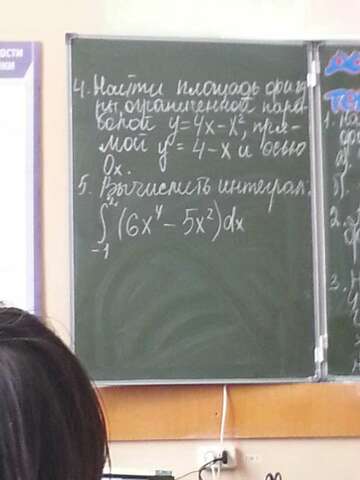 ОСТИ
4. Найти площадь фигу
ры, ограниченной пара-
болой y=4x-x², пря-
мой y = 4-x и осью
Ox.
5. Вычислить интеграл:
∫₋₁² (6x⁴ - 5x²)dx
1.
2.
3.